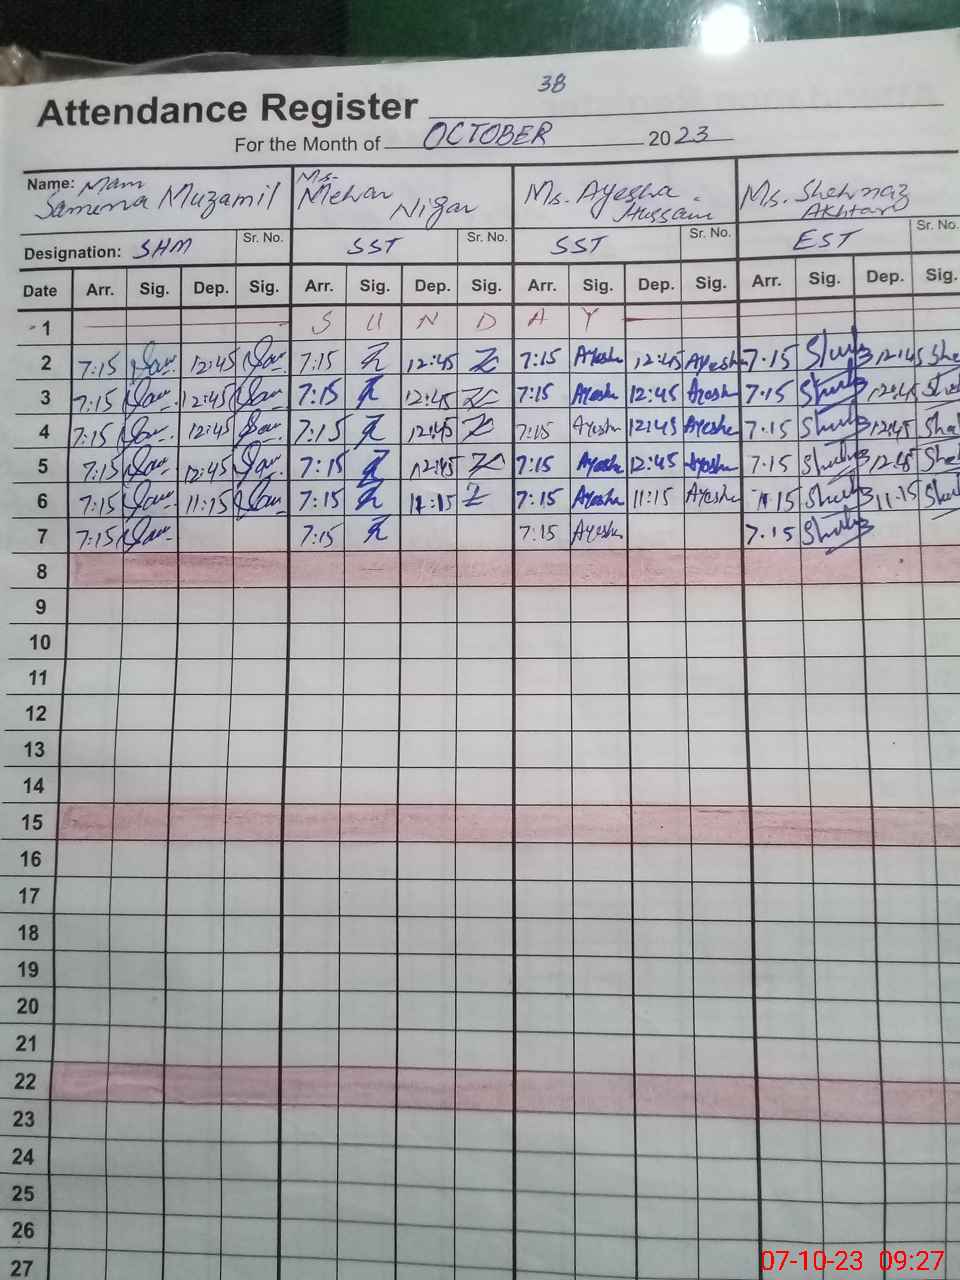 38
Attendance Register
For the Month of OCTOBER 2023
Name: Mam Samema Muzamil Ms. Mehar Nigar Ms. Ayesha Hussain Ms. Shehnaz Akhtar
Designation: SHM Sr. No. SST Sr. No. SST Sr. No. EST Sr. No.
Date Arr. Sig. Dep. Sig. Arr. Sig. Dep. Sig. Arr. Sig. Dep. Sig. Arr. Sig. Dep. Sig.
1 S U N D A Y
2 7:15 12:45 7:15 12:45 7:15 Ayesha 12:45 Ayesha 7.15 12:45
3 7:15 12:45 7:15 12:45 7:15 Ayesha 12:45 Ayesha 7.15 12:45
4 7:15 12:45 7:15 12:45 7:15 Ayesha 12:45 Ayesha 7.15 12:45
5 7:15 12:45 7:15 12:45 7:15 Ayesha 12:45 Ayesha 7.15 12:45
6 7:15 11:15 7:15 11:15 7:15 Ayesha 11:15 Ayesha 11:15
7 7:15 7:15 7:15 Ayesha 7.15
8
9
10
11
12
13
14
15
16
17
18
19
20
21
22
23
24
25
26
27
07-10-23 09:27